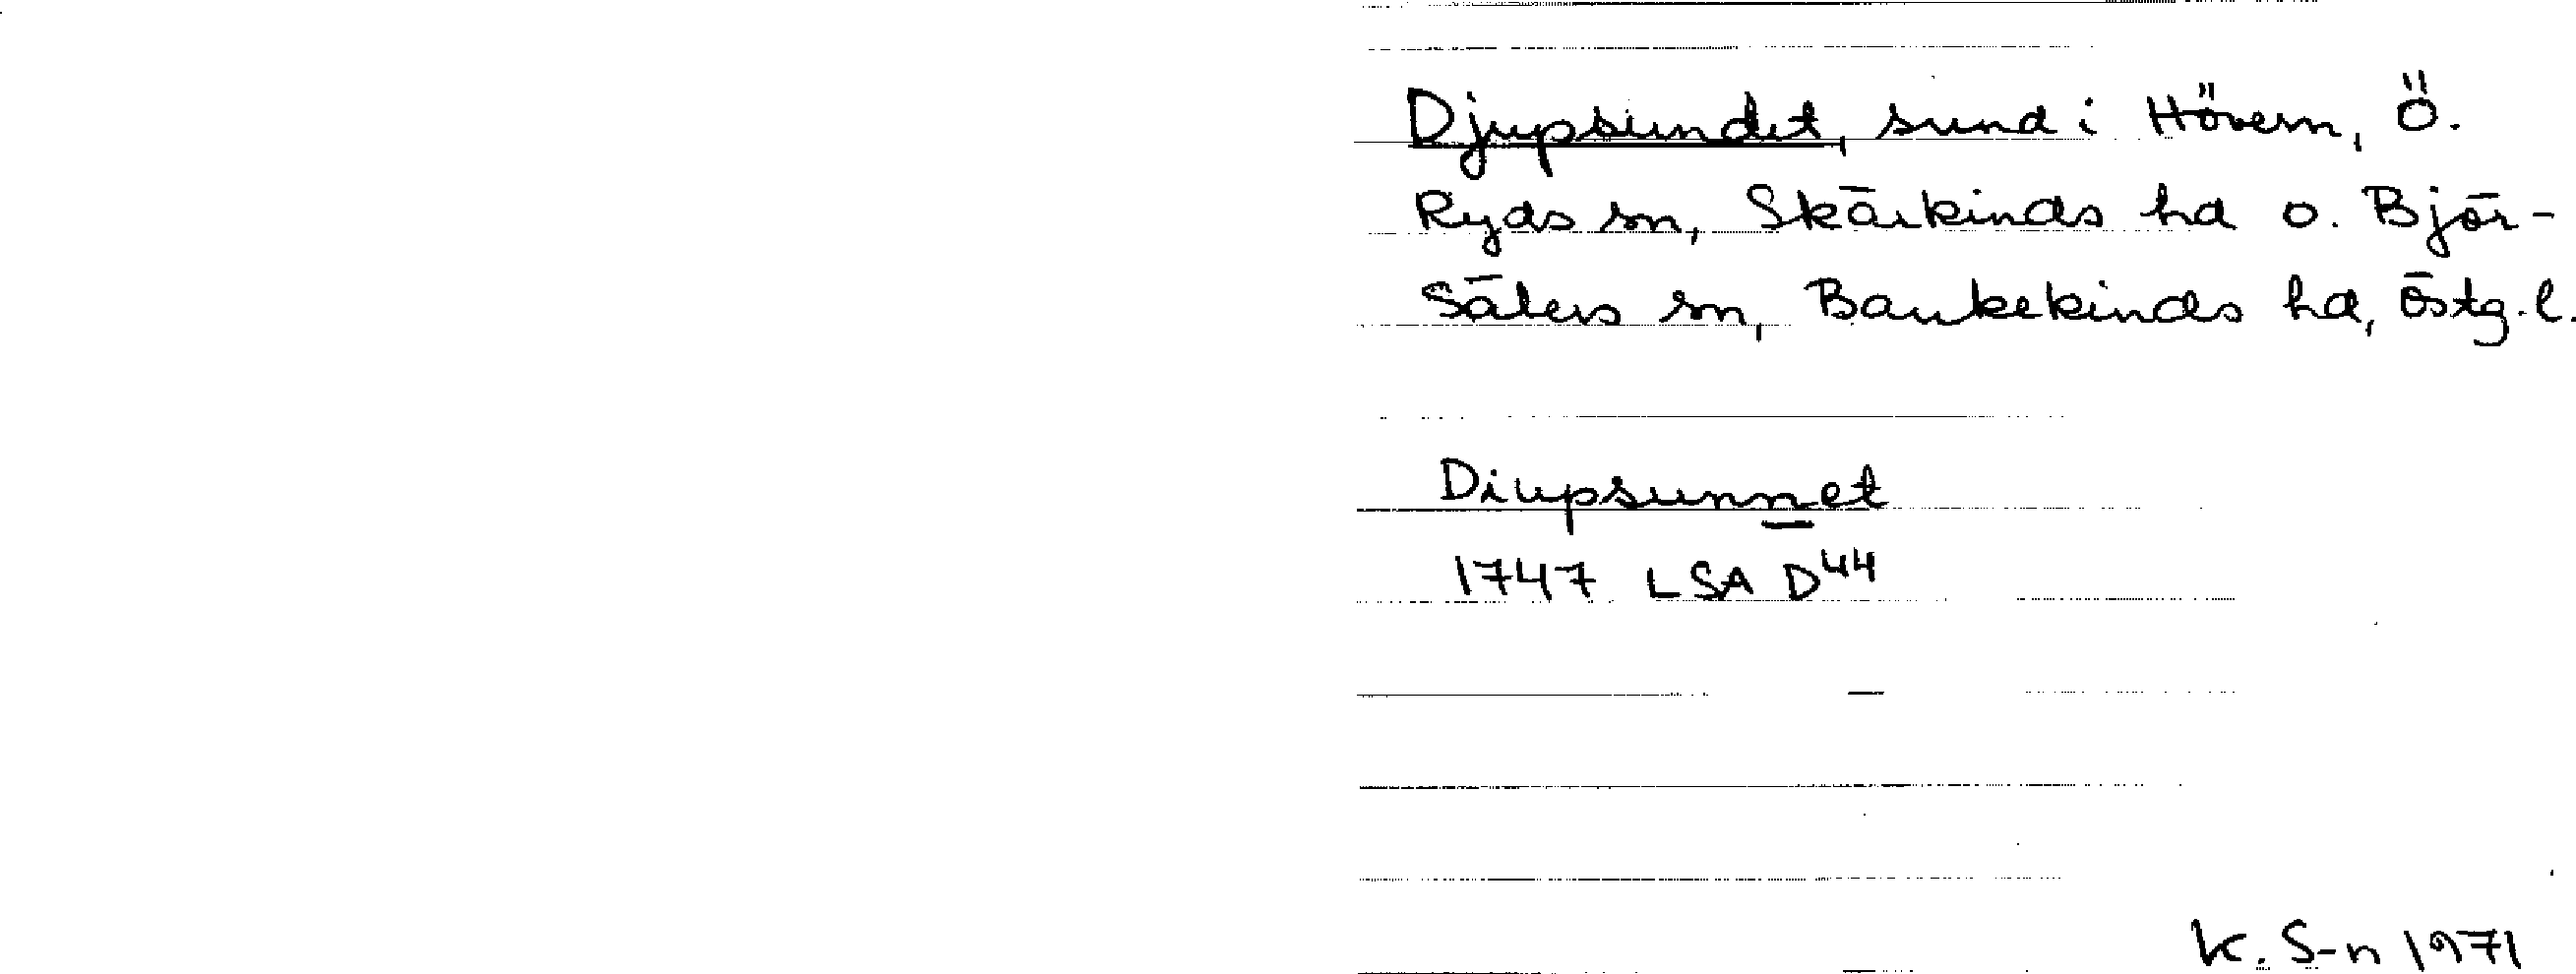 Djupsundet, sund i Hövern, Ö.
Ryds sn, Skärkinds hd o. Björ-
säters sn, Bankekinds hd, Östg. l.
Diupsunnet
1747 LSA D44
K. S-n 1971